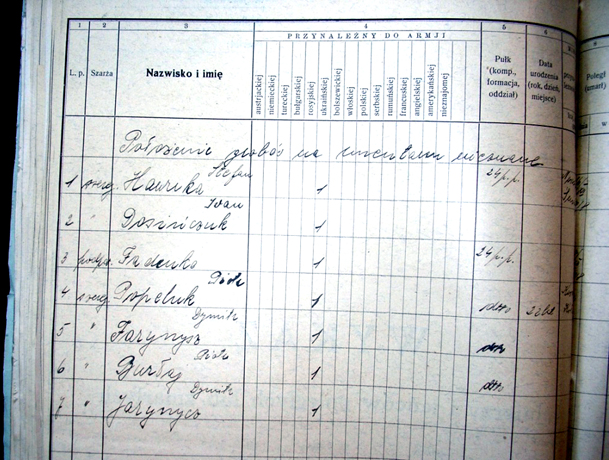 1 2 3 4 5 6
L. p. Szarża Nazwisko i imię PRZYNALEŻNY DO ARMJI Pułk (komp., formacja, oddział) Data urodzenia (rok, dzień, miejsce) Poległ (zmarł)
austrjackiej niemieckiej tureckiej bułgarskiej rosyjskiej ukraińskiej bolszewickiej włoskiej polskiej serbskiej rumuńskiej francuskiej angielskiej amerykańskiej nieznajomej
Położenie grobów na cmentarzu nieznane
Stefan 24 p.p.
1 szereg. Hawryka 1
Iwan
2 " 1
3 1 24 p.p.
Piotr
4 szereg Popeluk 1 dtto
Dymitr
5 " Farynycz 1 dtto
Piotr
6 " Burłaj 1 dtto
Dymitr
7 " Jarynycz 1